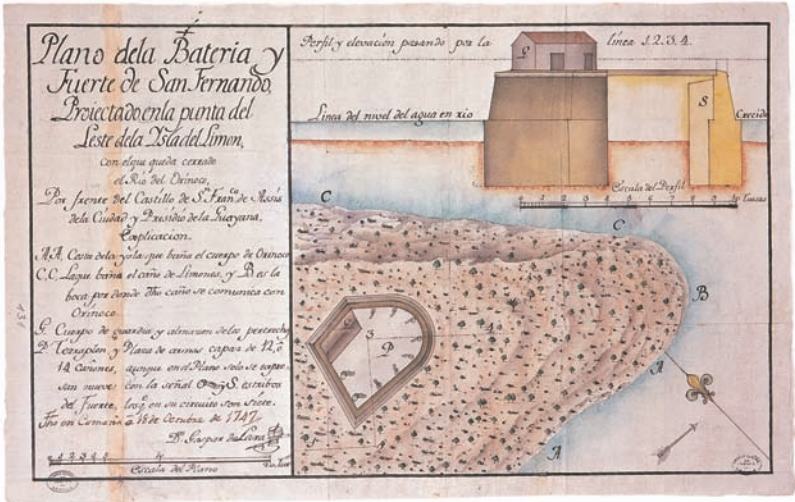 Plano dela Bateria y
Fuerte de San Fernando,
Proiectado enla punta del
Leste dela Ysla del Limon,
con el qui queda cerrado
el Rio del Orinoco,
Por frente del Castillo de Sn. Franco. de Assis
dela Ciudad y Presidio de la Guayana.
Explicacion.
A.A. Costa dela ysla que baña el cuerpo de Orinoco
C.C. Laque baña el caño de Limones, y B es la
boca por donde dho caño se comunica con
Orinoco
G. Cuerpo de guardia y almazen delos pertrechos
P. Terraplen y Plaza de armas capaz de 12, o
14 cañones, aunque en el Plano solo se expre-
san nueve con la señal S. estribos
del Fuerte, losq. en su circuito son siete.
Fho en Cumana a 18 de Octubre de 1747
Dn. Gaspar de Lara
Escala del Plano
431
Perfil y elevación pasando por la línea 1.2.3.4.
G
S
Linea del nivel del agua en rio Crecido
Escala del Perfil
Tuesas
C
C
B
G
3
P
4
A
A